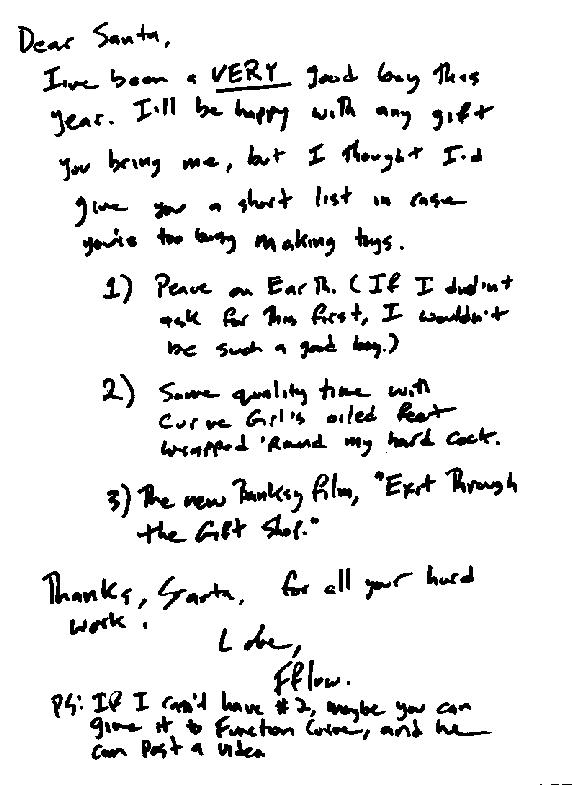 Dear Santa,
I've been a VERY good boy this
year. I'll be happy with any gift
you bring me, but I thought I'd
give you a short list in case
you're too busy making toys.
1) Peace on Earth. (If I didn't
ask for this first, I wouldn't
be such a good boy.)
2) Some quality time with
Curve Girl's oiled feet
wrapped 'round my hard cock.
3) The new Banksy film, "Exit Through
the Gift Shop."
Thanks, Santa, for all your hard
work.
Love,
Fflow.
PS: If I can't have #2, maybe you can
give it to Function Curve, and he
can post a video.